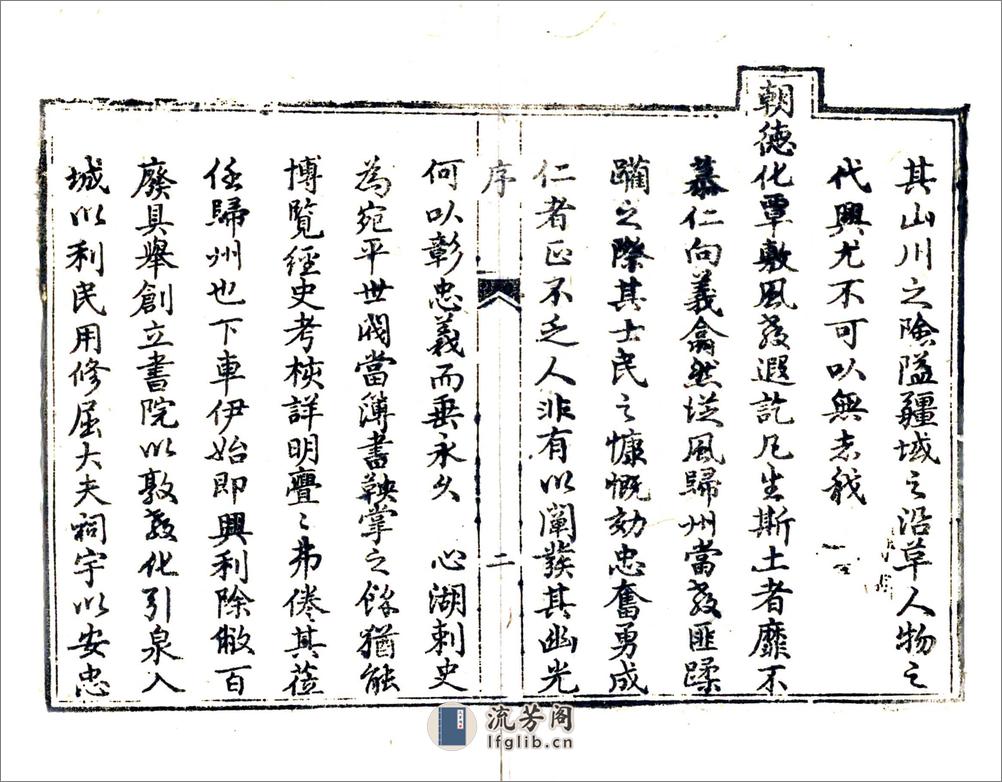 其山川之險隘疆域之沿革人物之
代興尤不可以無志我
朝德化覃敷風教遐訖凡生斯土者靡不
慕仁向義翕然從風歸州當教匪蹂
躪之際其士民之慷慨効忠奮勇成
仁者正不乏人非有以闡發其幽光
序
二
何以彰忠義而垂永久 心湖刺史
為宛平世閥當薄書鞅掌之餘猶能
博覽經史考核詳明亹〻弗倦其蒞
任歸州也下車伊始即興利除敝百
廢具舉創立書院以敦教化引泉入
城以利民用修屈大夫祠宇以安忠
流芳阁
lfglib.cn